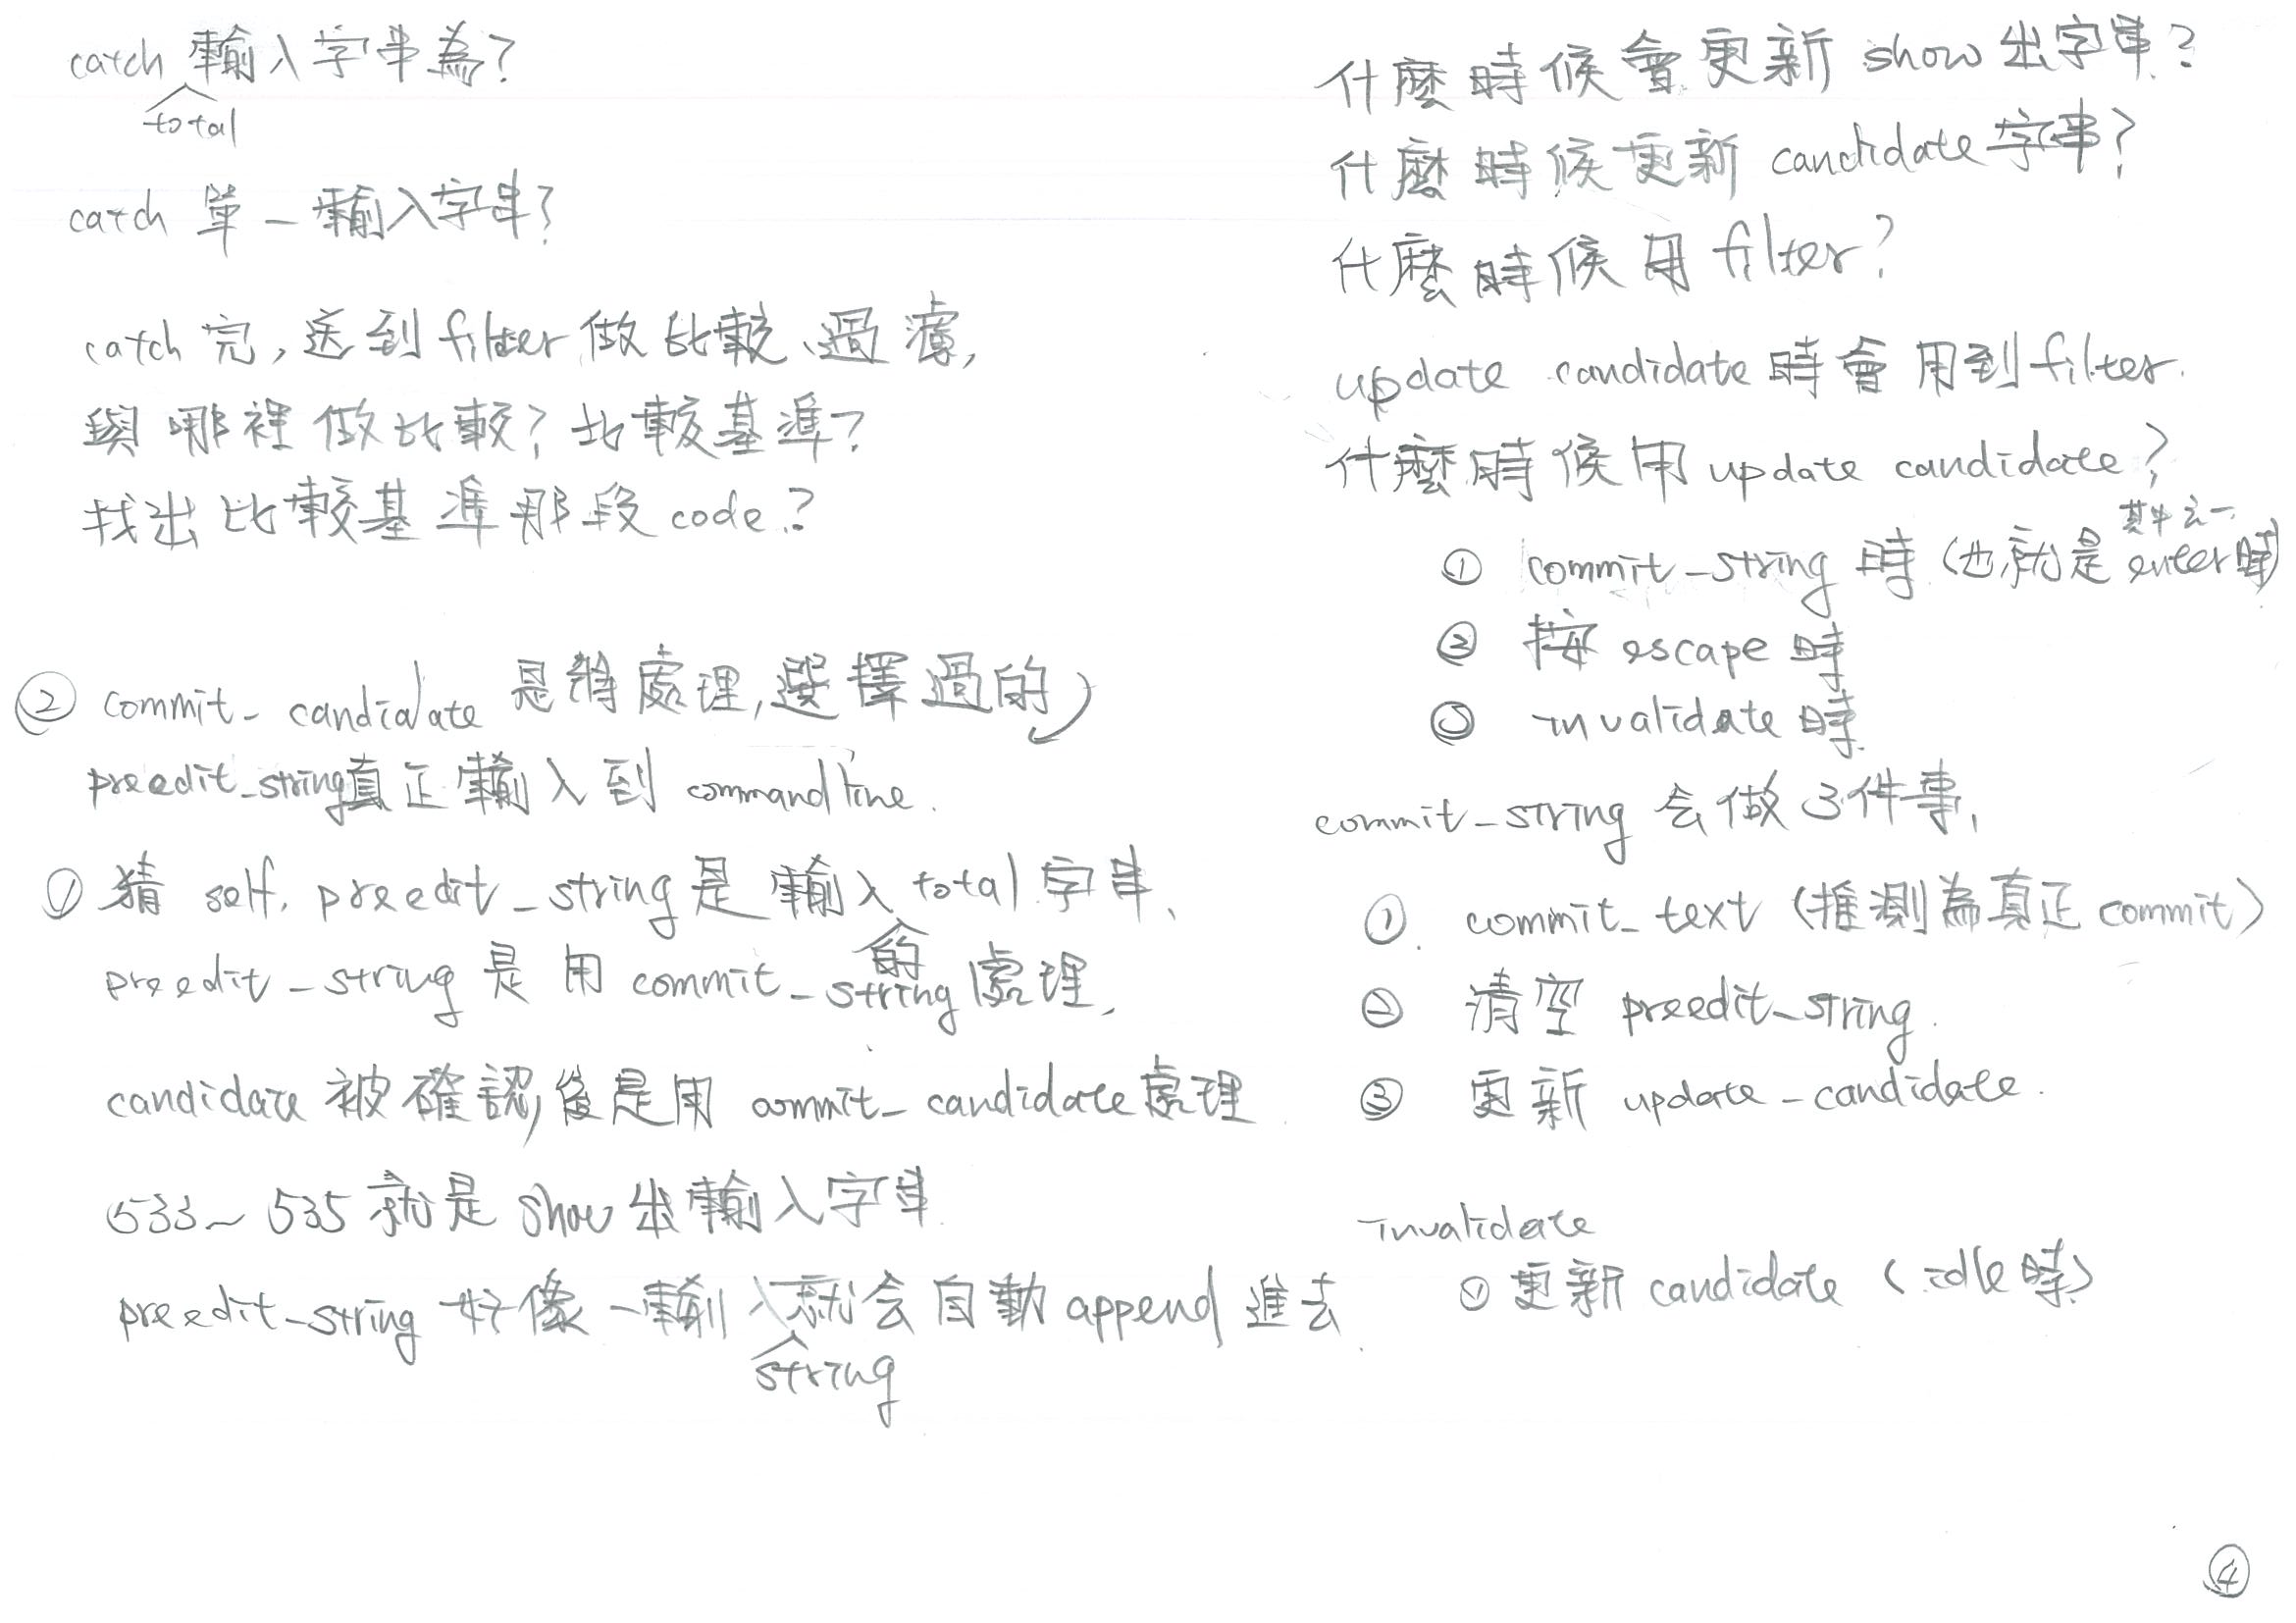 catch 輸入字串為?
total
catch 單一輸入字串?
catch 完, 送到 filter 做比較、過濾,
與哪裡做比較? 比較基準?
找出比較基準那段 code?
② commit_candidate 是將處理,選擇過的
preedit_string真正輸入到 commandline.
① 猜 self. preedit_string 是輸入 total 字串、
的
preedit_string 是用 commit_string 處理、
candidate 被確認後是用 commit_candidate 處理
533~535 就是 show 出輸入字串
preedit_string 好像一輸入就会自動 append 進去.
string
什麼時候會更新 show 出字串?
什麼時候更新 candidate 字串?
什麼時候用 filter?
update candidate 時會用到 filter.
什麼時候用 update candidate?
其中之一
① commit_string 時 (也就是 enter 時)
② 按 escape 時
③ invalidate 時
commit_string 会做 3 件事,
①. commit_text (推測為真正 commit)
② 清空 preedit_string.
③ 更新 update_candidate.
invalidate
① 更新 candidate (idle 時)
④